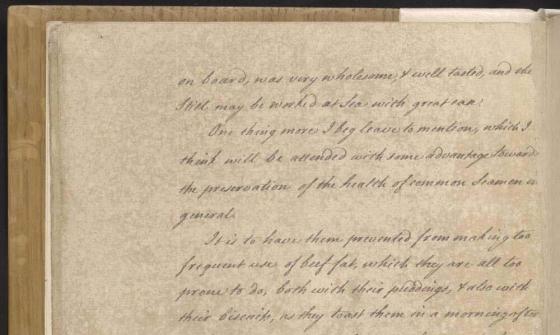 on board, was very wholesome, & well tasted, and the
Still may be worked at Sea with great ease.
One thing more I beg leave to mention, which I
think will be attended with some advantage toward
the preservation of the health of common Seamen in
general.
It is to have them prevented from making too
frequent use of beef fat, which they are all too
prone to do, both with their puddings, & also with
their biscuits, as they toast them in a morning after